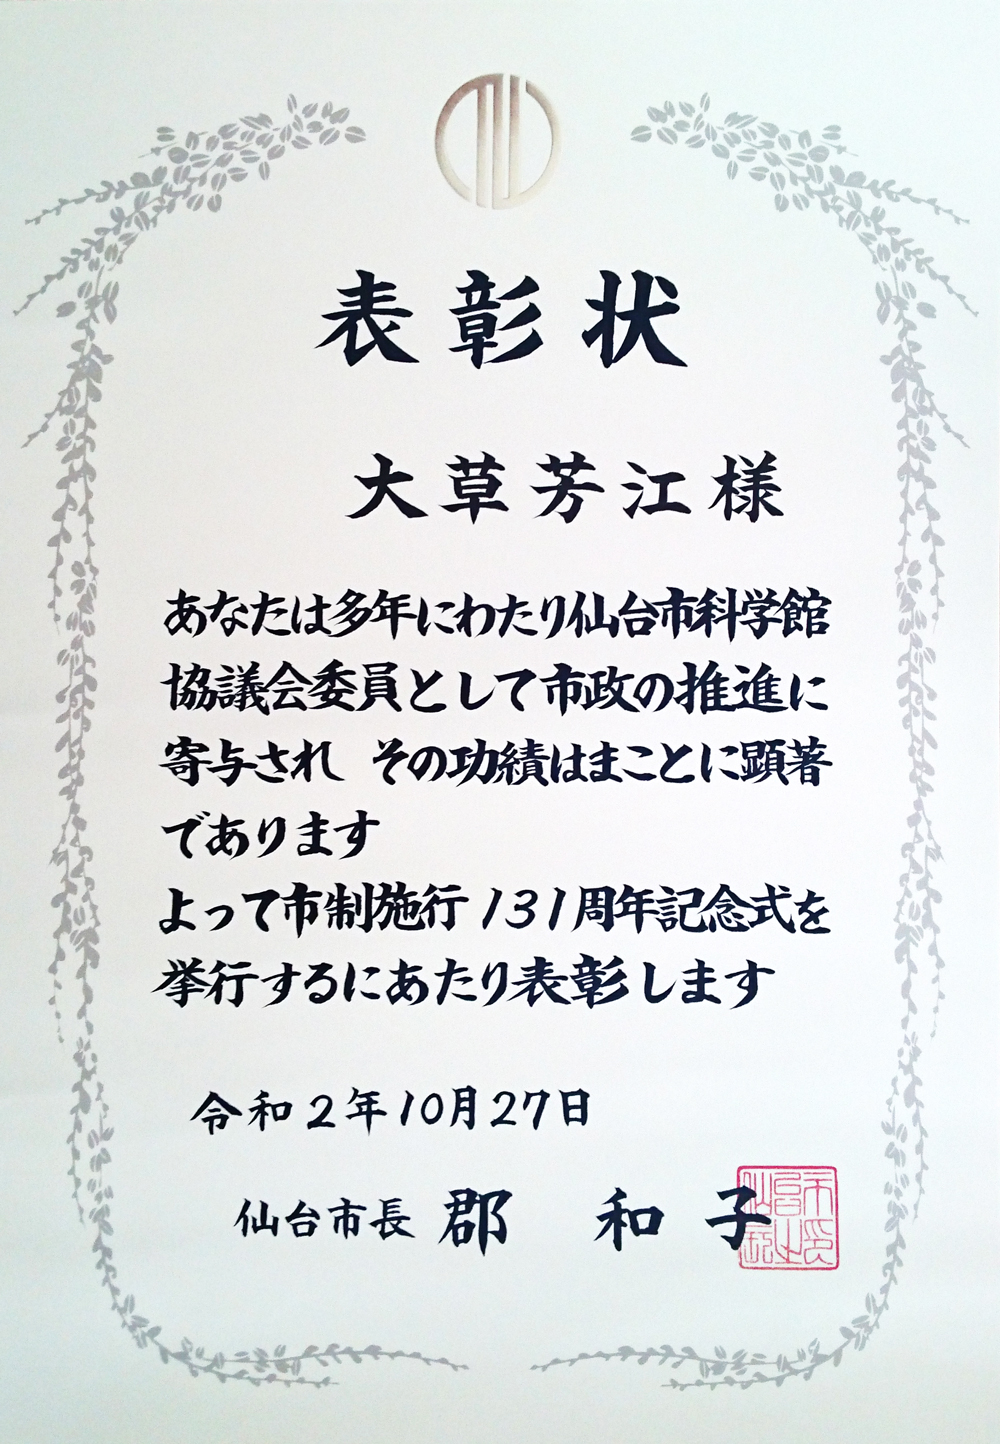 表彰状
大草芳江様
あなたは多年にわたり仙台市科学館
協議会委員として市政の推進に
寄与され その功績はまことに顕著
であります
よって市制施行131周年記念式を
挙行するにあたり表彰します
令和2年10月27日
仙台市長 郡 和子